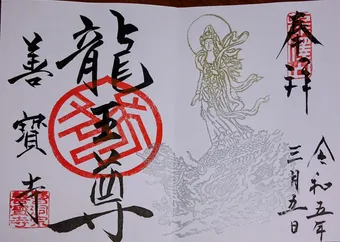 奉拝
令和五年
三月五日
龍王尊
善寳寺